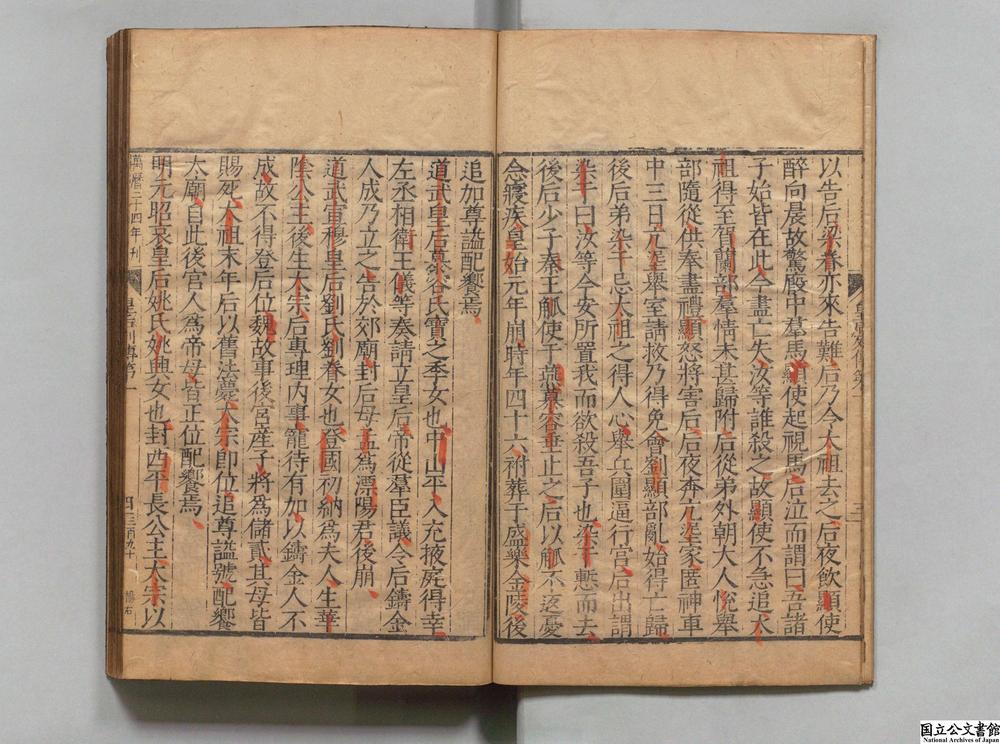 以告后梁眷亦來告難后乃令太祖去之后夜飲顯使
醉向晨故驚廐中羣馬顯使起視馬后泣而謂曰吾諸
子始皆在此今盡亡失汝等誰殺之故顯使不急追太
祖得至賀蘭部羣情未甚歸附后從弟外朝大人悅舉
部隨從供奉盡禮顯怒將害后后夜奔亢埿家匿神車
中三日亢埿舉室請救乃得免會劉顯部亂始得亡歸
後后弟染干忌太祖之得人心舉兵圍逼行宮后出謂
染干曰汝等今安所置我而欲殺吾子也染干慙而去
後后少子秦王觚使于燕慕容垂止之后以觚不返憂
念寢疾皇始元年崩時年四十六祔葬于盛樂金陵後
追加尊謚配饗焉
道武皇后慕容氏寶之季女也中山平入充掖庭得幸
左丞相衛王儀等奏請立皇后帝從羣臣議令后鑄金
人成乃立之告於郊廟封后母孟為漂陽君後崩
道武宣穆皇后劉氏劉眷女也登國初納為夫人生華
陰公主後生太宗后專理內事寵待有加以鑄金人不
成故不得登后位魏故事後宮產子將為儲貳其母皆
賜死太祖末年后以舊法薨太宗即位追尊謚號配饗
太廟自此後宮人為帝母皆正位配饗焉
明元昭哀皇后姚氏姚興女也封西平長公主太宗以
萬曆二十四年刊
皇后列傳第一
四
國立公文書館
National Archives of Japan